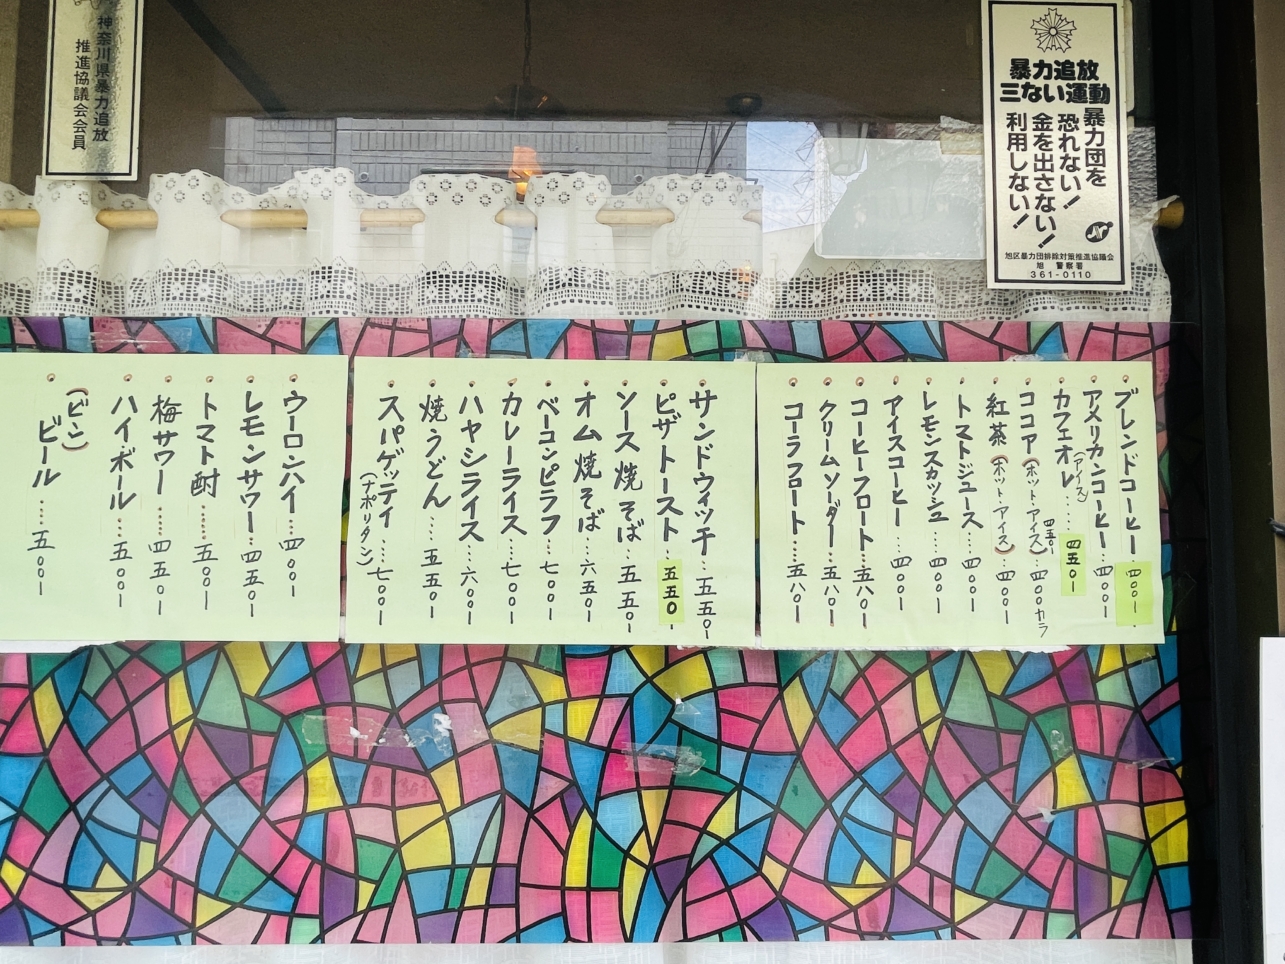 神奈川県暴力追放
推進協議会会員
暴力追放
三ない運動
暴力団を
恐れない!
金を出さない!
利用しない!
地区暴力団排除対策推進協議会
旭警察署
361-0110
ブレンドコーヒー 四〇〇ー
アメリカンコーヒー…四〇〇ー
カフェオレ……四五〇ー
(アイス) 四五〇ー
ココア(ホット・アイス)…四〇〇カラ
紅茶(ホット・アイス)…四〇〇ー
トマトジュース…四〇〇ー
レモンスカッシュ…四〇〇ー
アイスコーヒー…四〇〇ー
コーヒーフロート…五八〇ー
クリームソーダー…五八〇ー
コーラフロート…五八〇ー
サンドウィッチ…五五〇ー
ピザトースト…五五〇ー
ソース焼そば…五五〇ー
オム焼そば…六五〇ー
ベーコンピラフ…七〇〇ー
カレーライス…七〇〇ー
ハヤシライス…六〇〇ー
焼うどん…五五〇ー
スパゲッティ……七〇〇ー
(ナポリタン)
ウーロンハイ…四〇〇ー
レモンサワー…四五〇ー
トマト酎……五〇〇ー
梅サワー……四五〇ー
ハイボール……五〇〇ー
(ビン)
ビール……五〇〇ー